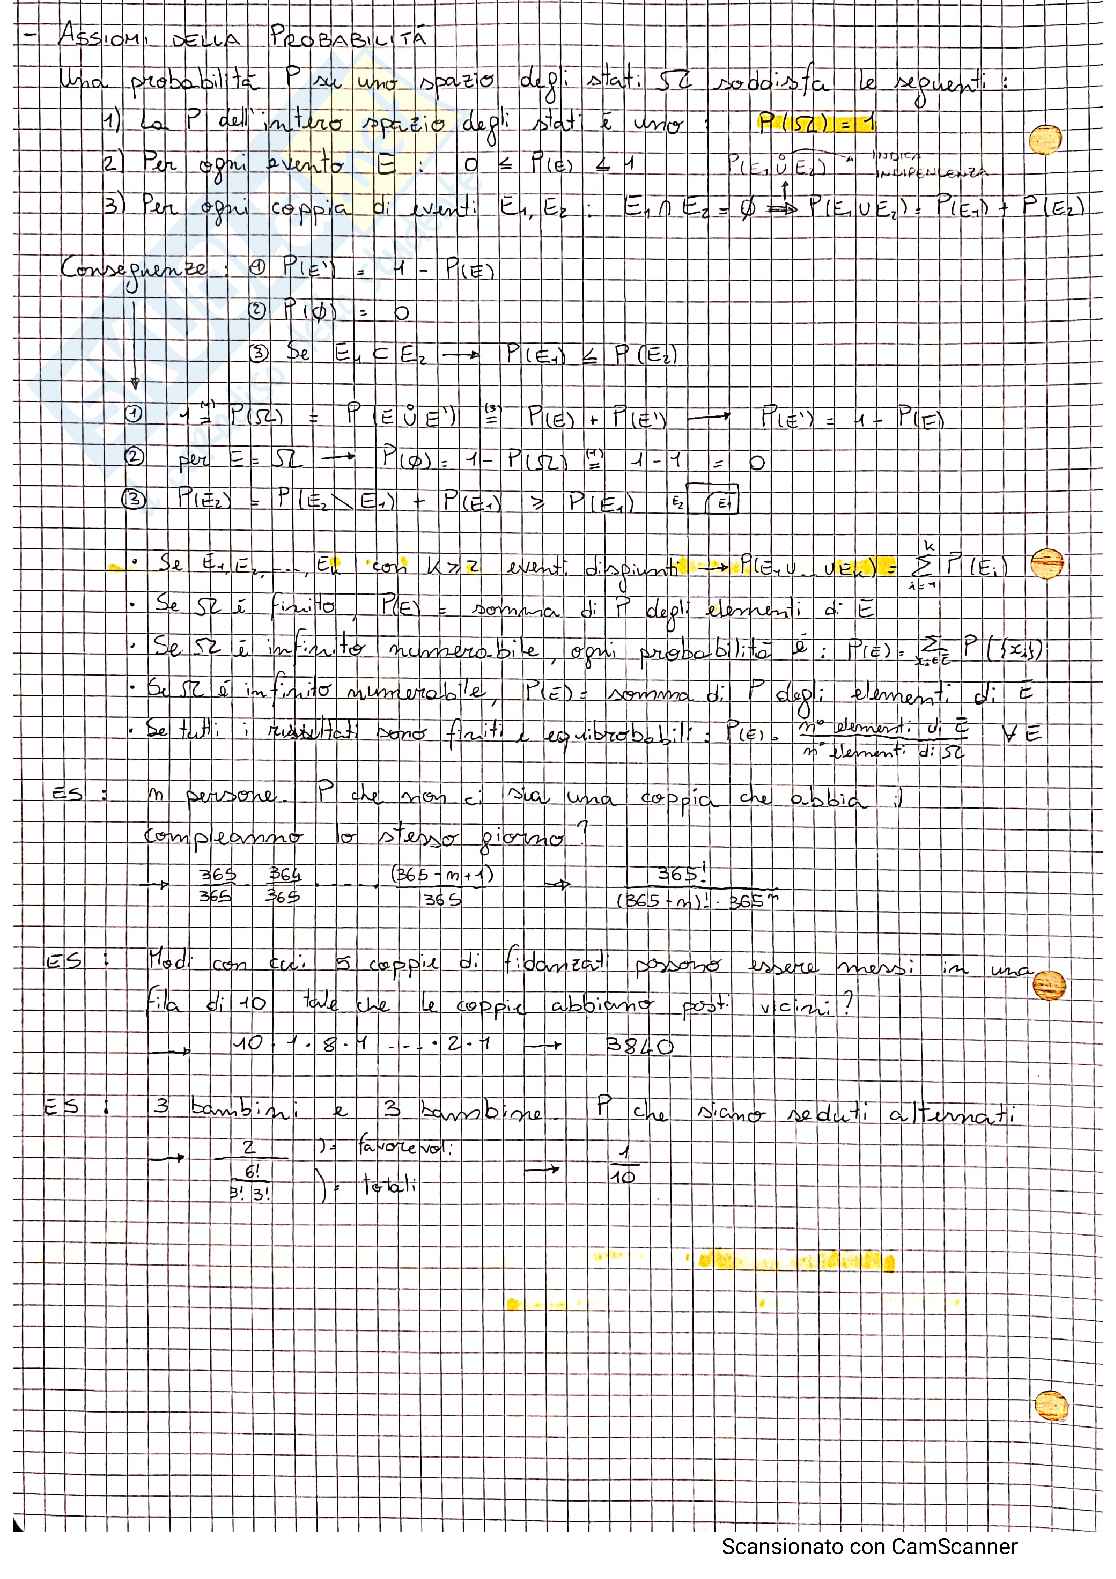 - ASSIOMI DELLA PROBABILITÀ
Una probabilità P su uno spazio degli stati Ω soddisfa le seguenti:
1) La P dell'intero spazio degli stati è uno : P(Ω) = 1
2) Per ogni evento E : 0 ≤ P(E) ≤ 1 P(E₁ ů E₂) → INDICA INDIPENDENZA
3) Per ogni coppia di eventi E₁, E₂ : E₁ ∩ E₂ = ∅ ⇒ P(E₁ ∪ E₂) = P(E₁) + P(E₂)
Conseguenze : ① P(E') = 1 - P(E)
② P(∅) = 0
③ Se E₁ ⊂ E₂ → P(E₁) ≤ P(E₂)
① 1 =⁽¹⁾ P(Ω) = P(E ů E') =⁽³⁾ P(E) + P(E') → P(E') = 1 - P(E)
② per E = Ω → P(∅) = 1 - P(Ω) =⁽¹⁾ 1 - 1 = 0
③ P(E₂) = P(E₂ \ E₁) + P(E₁) ≥ P(E₁) E₂ E₁
· Se E₁, E₂, ..., Eₖ con K ≥ 2 eventi disgiunti → P(E₁ ∪ ... ∪ Eₖ) = ∑ᵢ₌₁ᵏ P(Eᵢ)
· Se Ω è finito, P(E) = somma di P degli elementi di E
· Se Ω è infinito numerabile, ogni probabilità è : P(E) = ∑ xᵢ∈E P({xᵢ})
· Se Ω è infinito numerabile, P(E) = somma di P degli elementi di E
· Se tutti i risultati sono finiti e equibrobabili : P(E) = n° elementi di E / n° elementi di Ω ∀ E
ES : n persone. P che non ci sia una coppia che abbia il
compleanno lo stesso giorno?
→ 365/365 · 364/365 · ... · (365-n+1)/365 → 365! / (365-n)! · 365ⁿ
ES : Modi con cui 5 coppie di fidanzati possono essere messi in una
fila di 10 tale che le coppie abbiano posti vicini?
→ 10 · 1 · 8 · 1 · ... · 2 · 1 → 3840
ES : 3 bambini e 3 bambine. P che siano seduti alternati
→ 2 / (6! / 3! 3!) )= favorevoli )= totali → 1/10
Scansionato con CamScanner